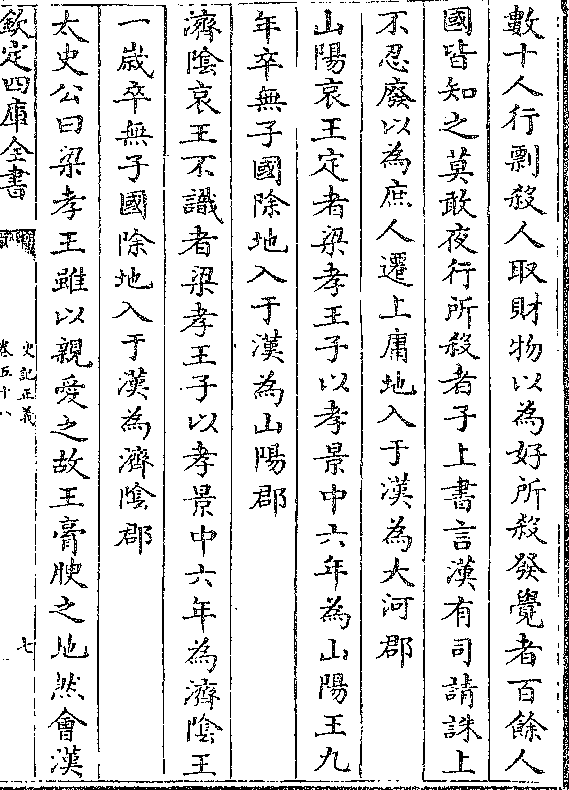 數十人行剽殺人取財物以為好所殺發覺者百餘人
國皆知之莫敢夜行所殺者子上書言漢有司請誅上
不忍廢以為庶人遷上庸地入于漢為大河郡
山陽哀王定者梁孝王子以孝景中六年為山陽王九
年卒無子國除地入于漢為山陽郡
濟隂哀王不識者梁孝王子以孝景中六年為濟隂王
一歲卒無子國除地入于漢為濟隂郡
太史公曰梁孝王雖以親愛之故王膏腴之地然會漢
欽定四庫全書
史記正義
卷五十八
七